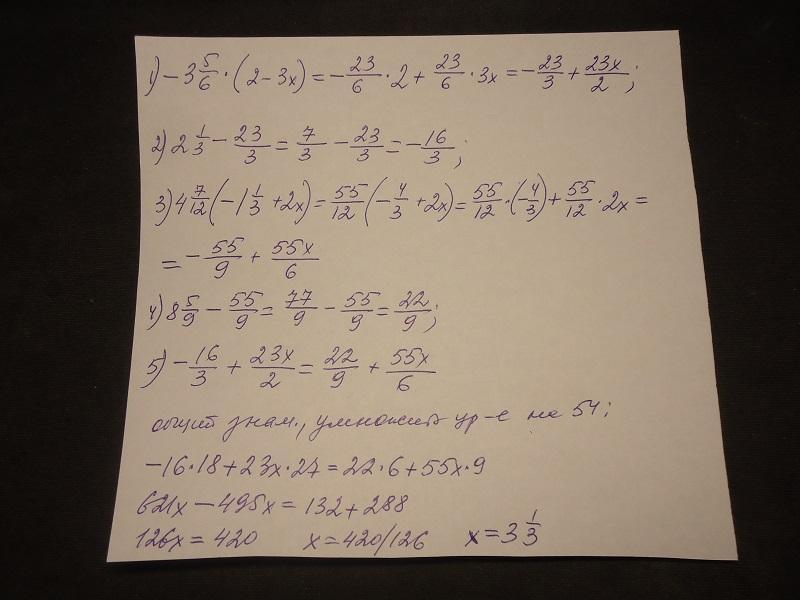 1) -3 5/6 · (2 - 3x) = -23/6 · 2 + 23/6 · 3x = -23/3 + 23x/2;
2) 2 1/3 - 23/3 = 7/3 - 23/3 = -16/3;
3) 4 7/12 (-1 1/3 + 2x) = 55/12 (-4/3 + 2x) = 55/12 · (-4/3) + 55/12 · 2x =
= -55/9 + 55x/6
4) 8 5/9 - 55/9 = 77/9 - 55/9 = 22/9;
5) -16/3 + 23x/2 = 22/9 + 55x/6
общий знам., умножить ур-е на 54:
-16·18 + 23x·27 = 22·6 + 55x·9
621x - 495x = 132 + 288
126x = 420 x = 420/126 x = 3 1/3